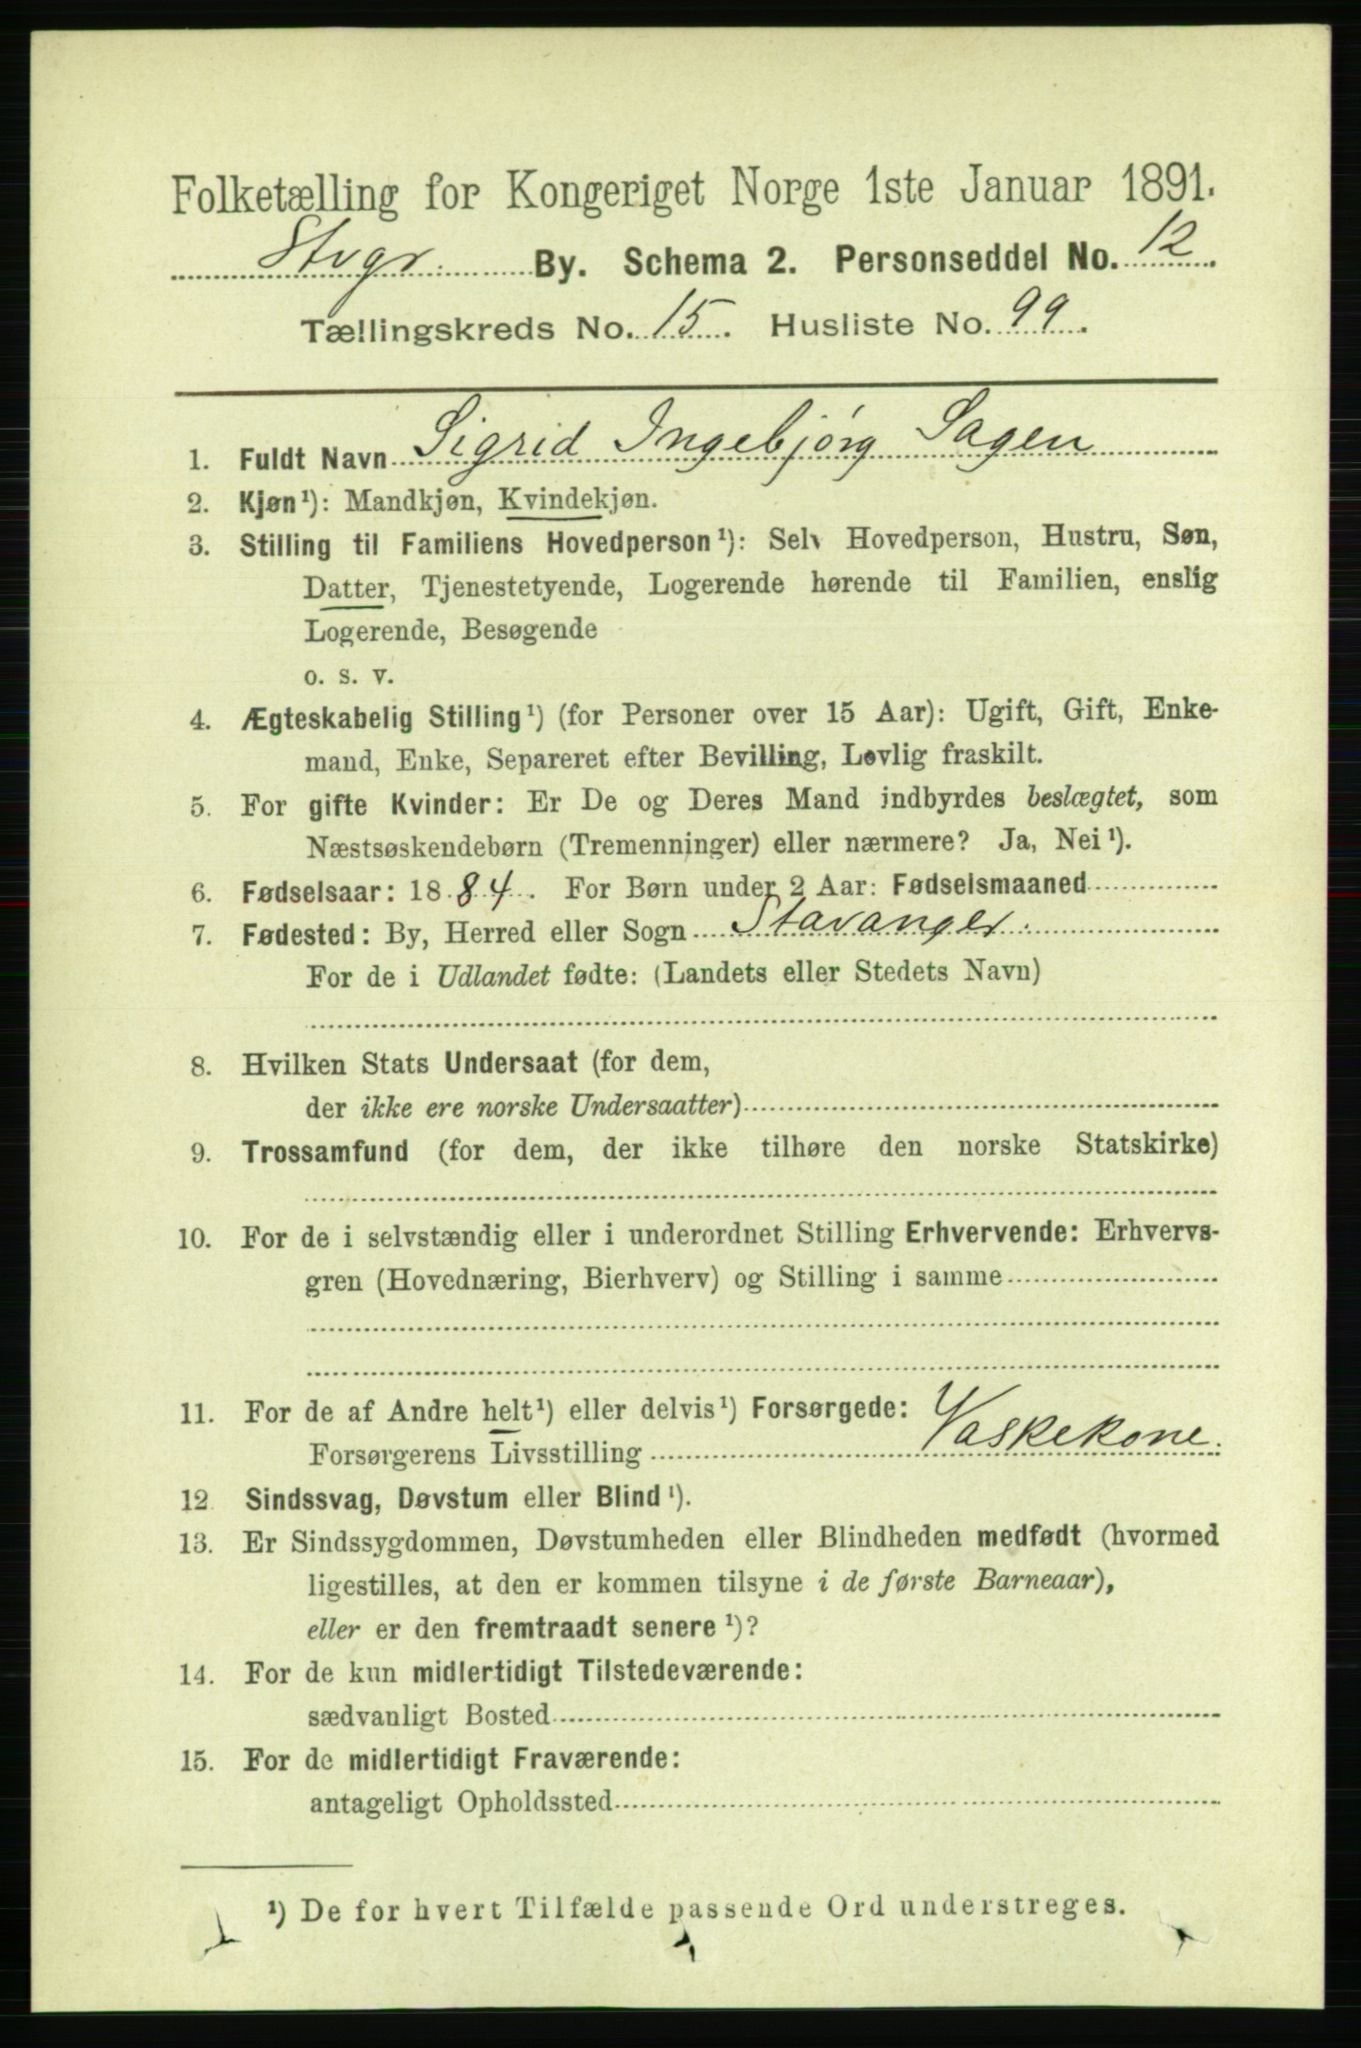 Folketælling for Kongeriget Norge 1ste Januar 1891.
Stvgr. By. Schema 2. Personseddel No. 12
Tællingskreds No. 15. Husliste No. 99.
1. Fuldt Navn Sigrid Ingebjørg Sagen
2. Kjøn¹): Mandkjøn, Kvindekjøn.
3. Stilling til Familiens Hovedperson¹): Selv Hovedperson, Hustru, Søn,
Datter, Tjenestetyende, Logerende hørende til Familien, enslig
Logerende, Besøgende
o. s. v.
4. Ægteskabelig Stilling¹) (for Personer over 15 Aar): Ugift, Gift, Enke-
mand, Enke, Separeret efter Bevilling, Lovlig fraskilt.
5. For gifte Kvinder: Er De og Deres Mand indbyrdes beslægtet, som
Næstsøskendebørn (Tremenninger) eller nærmere? Ja, Nei¹).
6. Fødselsaar: 1884. For Børn under 2 Aar: Fødselsmaaned
7. Fødested: By, Herred eller Sogn Stavanger.
For de i Udlandet fødte: (Landets eller Stedets Navn)
8. Hvilken Stats Undersaat (for dem,
der ikke ere norske Undersaatter)
9. Trossamfund (for dem, der ikke tilhøre den norske Statskirke)
10. For de i selvstændig eller i underordnet Stilling Erhvervende: Erhvervs-
gren (Hovednæring, Bierhverv) og Stilling i samme
11. For de af Andre helt¹) eller delvis¹) Forsørgede:
Forsørgerens Livsstilling Vaskekone.
12. Sindssvag, Døvstum eller Blind¹).
13. Er Sindssygdommen, Døvstumheden eller Blindheden medfødt (hvormed
ligestilles, at den er kommen tilsyne i de første Barneaar),
eller er den fremtraadt senere¹)?
14. For de kun midlertidigt Tilstedeværende:
sædvanligt Bosted
15. For de midlertidigt Fraværende:
antageligt Opholdssted
¹) De for hvert Tilfælde passende Ord understreges.